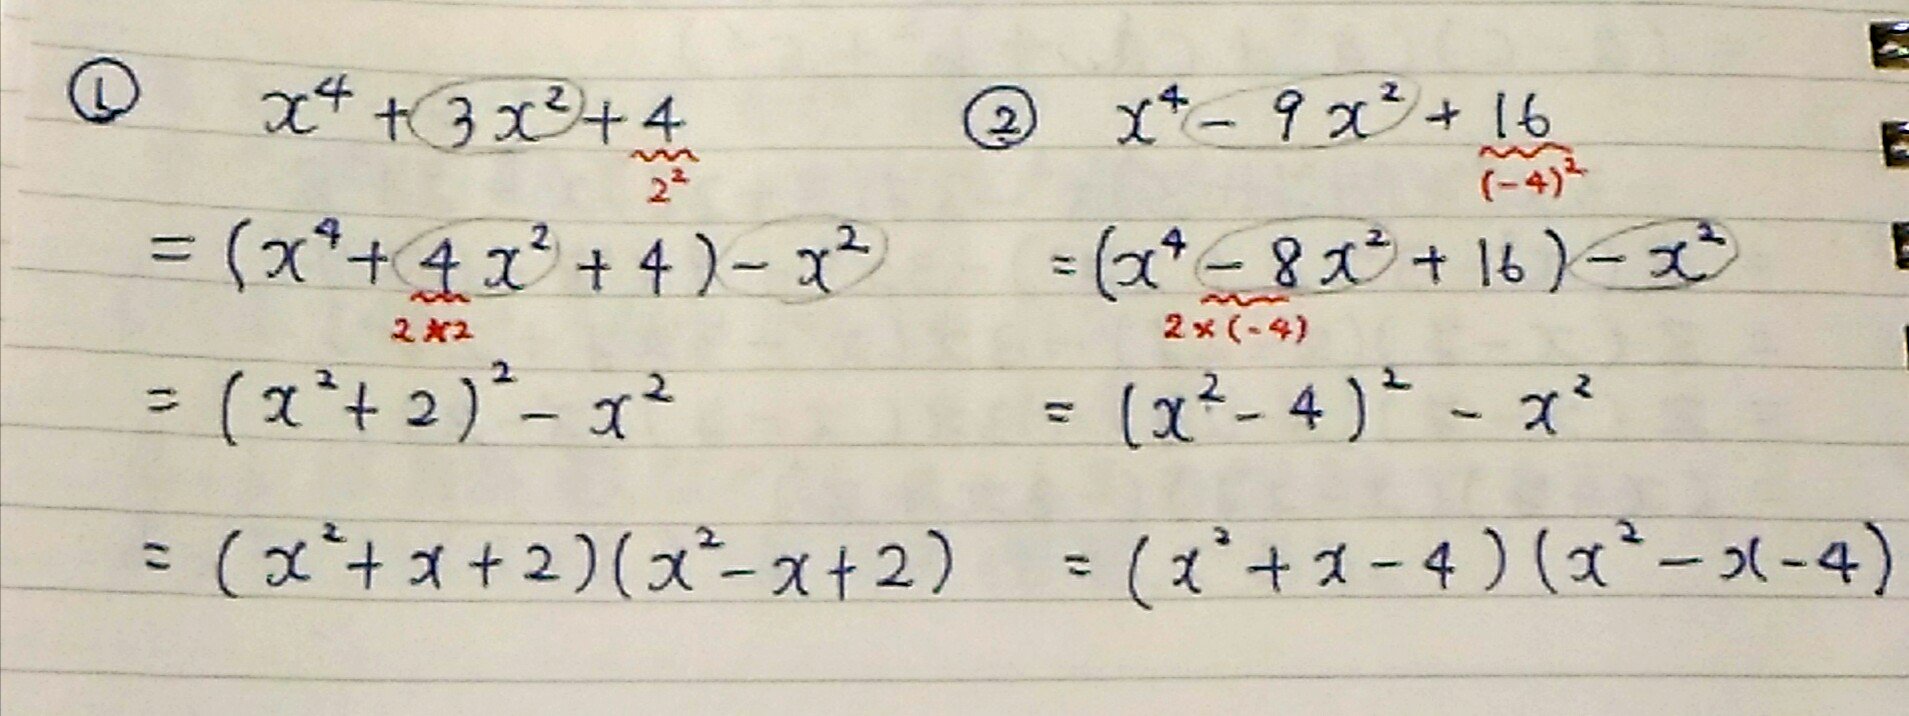 ① x⁴ + 3x² + 4
2²
= (x⁴ + 4x² + 4) - x²
2×2
= (x² + 2)² - x²
= (x² + x + 2)(x² - x + 2)
② x⁴ - 9x² + 16
(-4)²
= (x⁴ - 8x² + 16) - x²
2×(-4)
= (x² - 4)² - x²
= (x² + x - 4)(x² - x - 4)